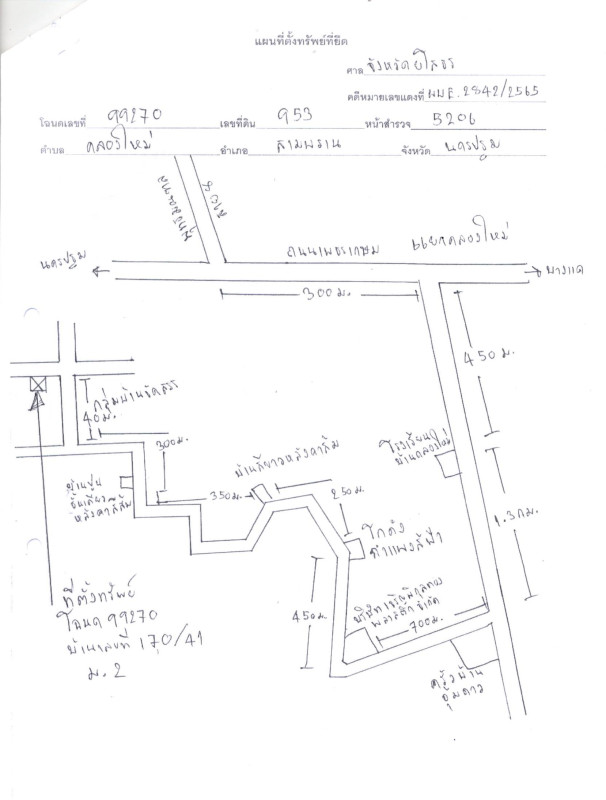 แผนที่ตั้งทรัพย์ที่ยึด
ศาล จังหวัดยโสธร
คดีหมายเลขแดงที่ ผบE.2842/2565
โฉนดเลขที่ 99270 เลขที่ดิน 953 หน้าสำรวจ 5206
ตำบล คลองใหม่ อำเภอ สามพราน จังหวัด นครปฐม
แยกคลองใหม่
ถนนเพชรเกษม
นครปฐม
บางแค
300 ม.
450 ม.
กลุ่มบ้านจัดสรร
40ม.
300ม.
โรงเรียน
บ้านคลองใหม่
บ้านสีขาวหลังคาส้ม
350 ม.
250 ม.
บ้านปูน
ชั้นเดียว
หลังคาสีส้ม
1.3กม.
โกดัง
กำแพงสีฟ้า
ที่ตั้งทรัพย์
โฉนด 99270
บ้านเลขที่ 170/41
ม.2
450ม.
บริษัท
พลาสติก จำกัด
700ม.
ครัวบ้าน
อุ้มดาว